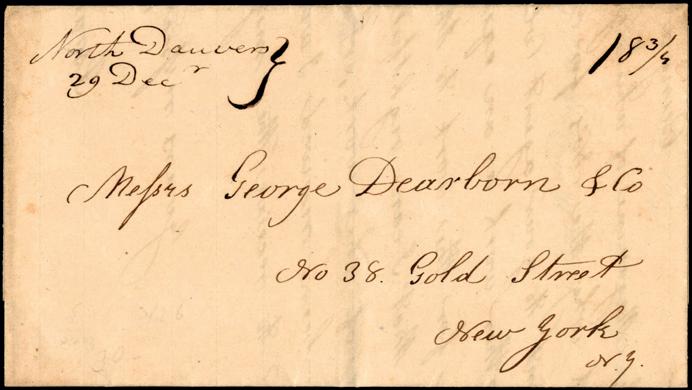 North Danvers
29 Decr
18 3/4
Messrs George Dearborn & Co
No 38. Gold Street
New York
N.Y.